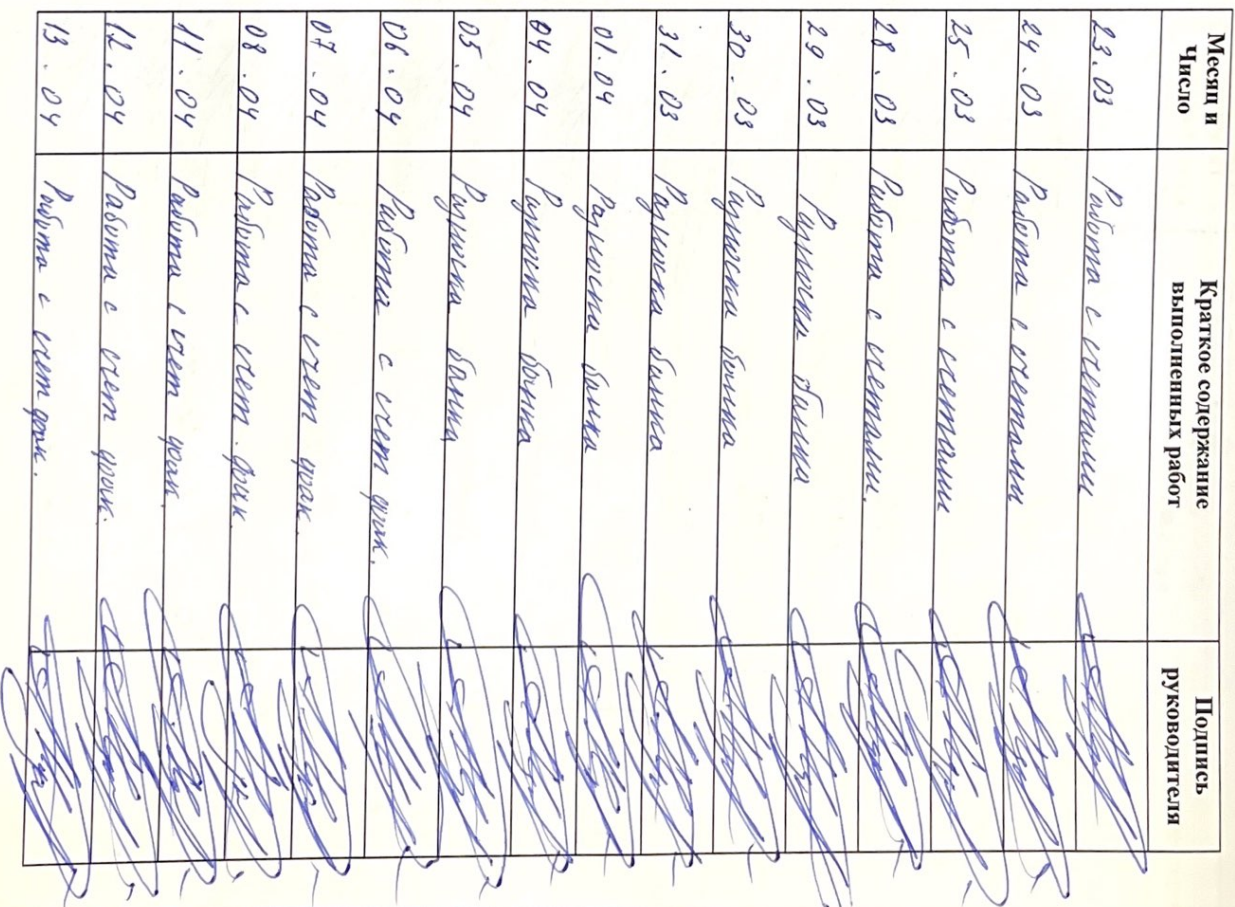 Месяц и Число Краткое содержание выполненных работ Подпись руководителя
23.03 Работа с счетами
24.03 Работа с счетами
25.03 Работа с счетами
28.03 Работа с счетами.
29.03 Разноска банка
30.03 Разноска банка
31.03 Разноска банка
01.04 Разноска банка
04.04 Разноска банка
05.04 Разноска банка
06.04 Работа с счет фак.
07.04 Работа с счет фак.
08.04 Работа с счет. фак.
11.04 Работа с счет фак.
12.04 Работа с счет фак.
13.04 Работа с счет фак.